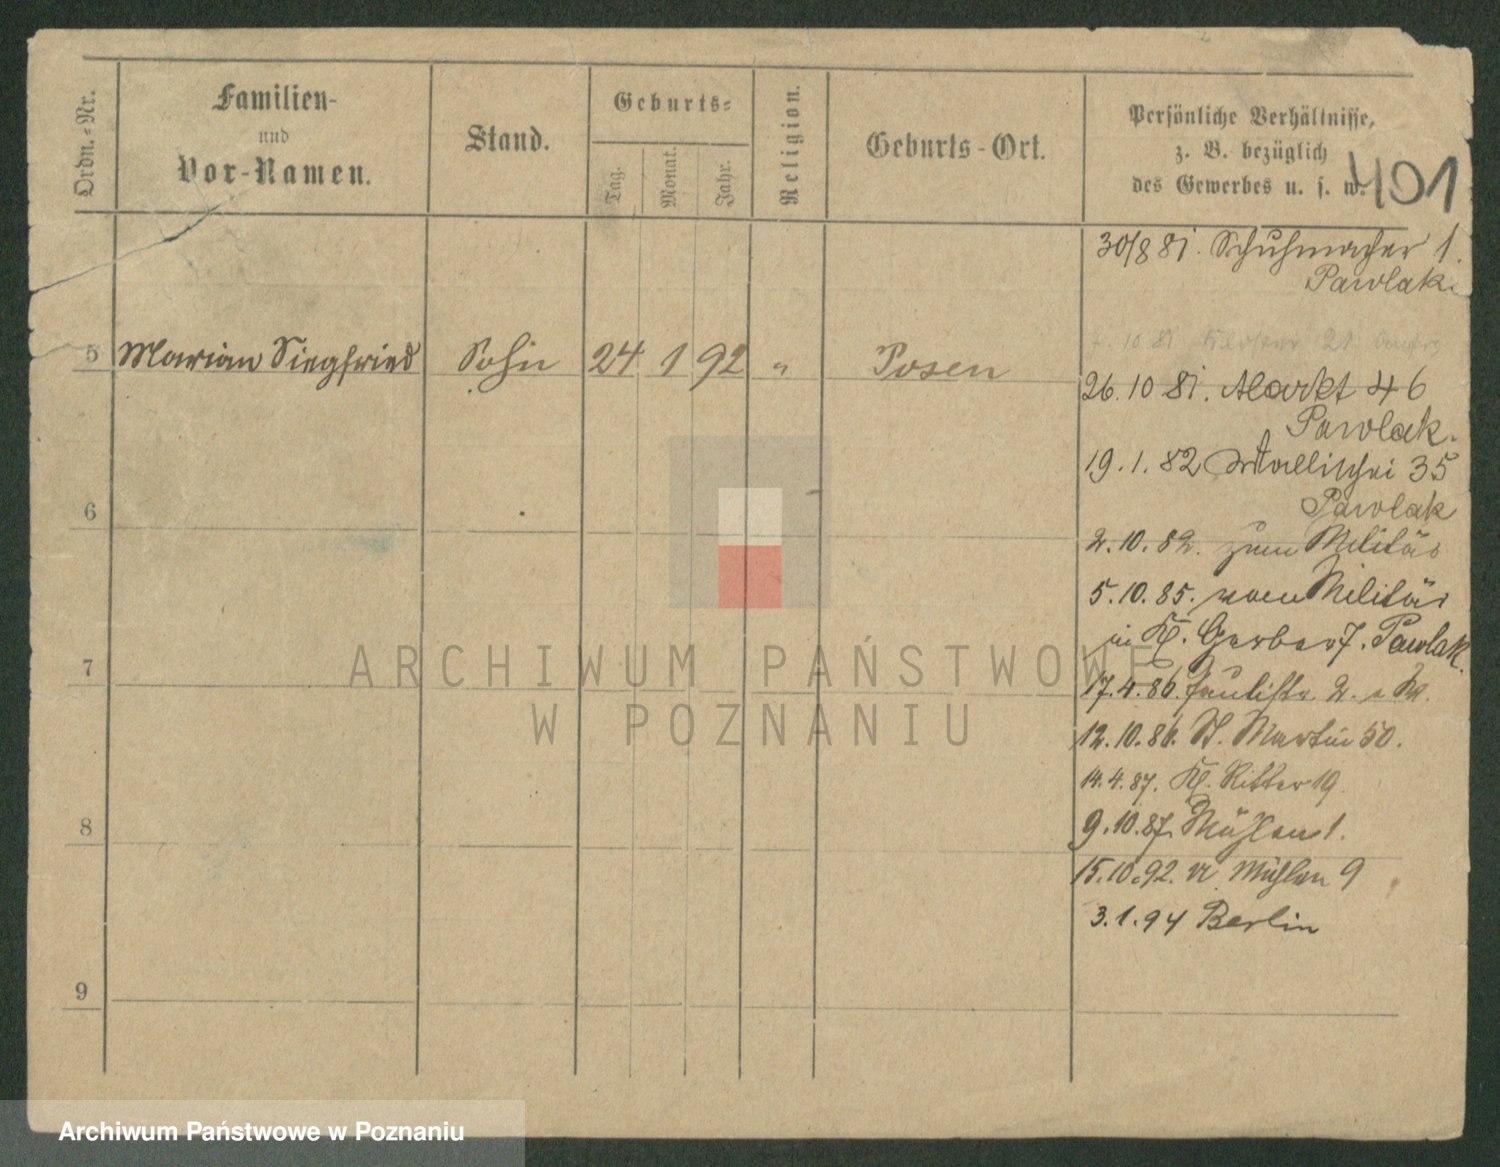 Ordn.-Nr.
Familien-
und
Vor-Namen.
Stand.
Geburts-
Tag.
Monat.
Jahr.
Religion.
Geburts-Ort.
Persönliche Verhältnisse,
z. B. bezüglich
des Gewerbes u. s. w.
401
30/8 81. Schuhmacher 1.
Pawlak.
7. 10 81 Kloster 21
5 Marian Siegfried Sohn 24 1 92 " Posen
26. 10 81. Markt 46
Pawlak.
19. 1. 82 Wallischei 35
Pawlak
6
2. 10. 82. zum Militär
5. 10. 85. vom Militär
in Kl. Gerber 7. Pawlak.
7
17. 4. 86. 2.
12. 10. 86. St. Martin 50.
14. 4. 87. Kl. Ritter 19.
8
9. 10. 87. Mühlen 1.
15. 10. 92. Mühlen 9
3. 1. 94 Berlin
9
ARCHIWUM PAŃSTWOWE
W POZNANIU
Archiwum Państwowe w Poznaniu